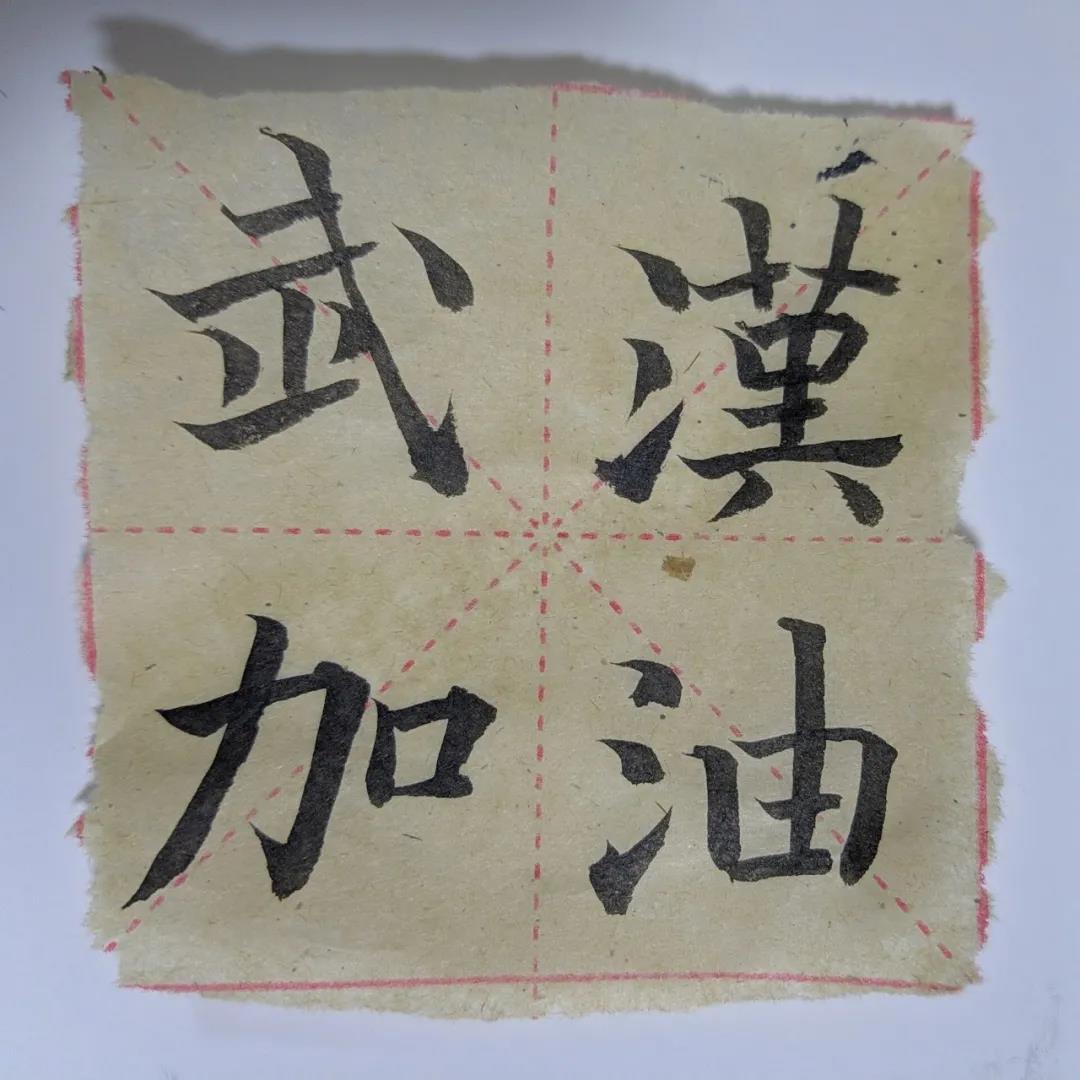 武漢
加油